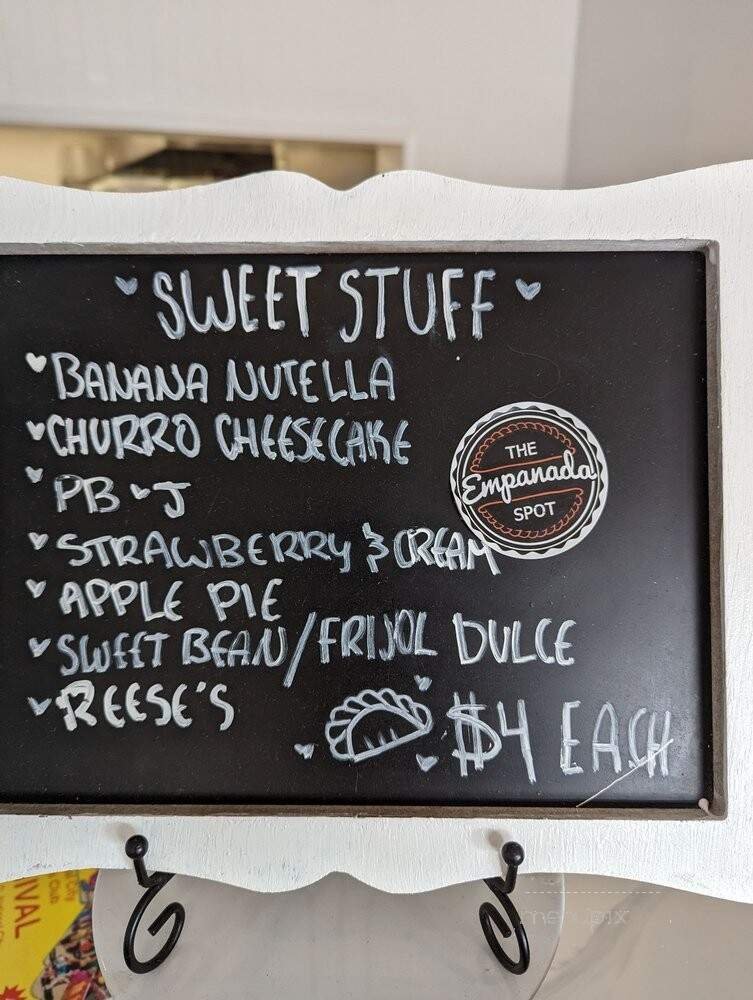 SWEET STUFF
BANANA NUTELLA
CHURRO CHEESECAKE
PB J
STRAWBERRY & CREAM
APPLE PIE
SWEET BEAN/FRIJOL DULCE
REESE'S
$4 EACH
THE
Empanada
SPOT
IVAL
menupix